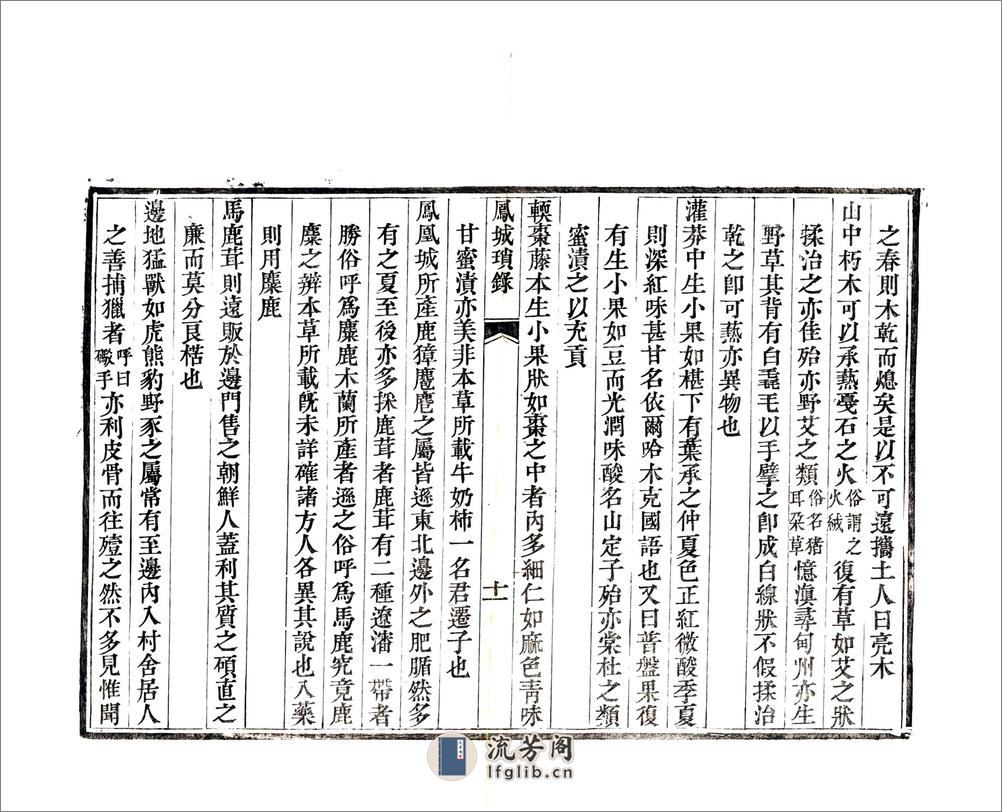 之春則木乾而熄矣是以不可遠攜土人曰亮木
山中朽木可以承爇戞石之火俗謂之火絨復有草如艾之狀
揉冶之亦佳殆亦野艾之類俗名猪耳朶草憶滇尋甸州亦生
野草其背有白毳毛以手擘之卽成白線狀不假揉冶
乾之卽可爇亦異物也
灌莽中生小果如椹下有葉承之仲夏色正紅微酸季夏
則深紅味甚甘名依爾哈木克國語也又曰普盤果復
有生小果如豆而光潤味酸名山定子殆亦棠杜之類
蜜漬之以充貢
輭棗藤本生小果狀如棗之中者內多細仁如麻色靑味
鳳城瑣錄
十一
甘蜜漬亦美非本草所載牛奶柿一名君遷子也
鳳凰城所產鹿獐麈麅之屬皆遜東北邊外之肥腯然多
有之夏至後亦多採鹿茸者鹿茸有二種遼瀋一帶者
勝俗呼爲麋鹿木蘭所產者遜之俗呼爲馬鹿究竟鹿
麋之辨本草所載旣未詳確諸方人各異其說也入藥
則用麋鹿
馬鹿茸則遠販於邊門售之朝鮮人蓋利其質之碩直之
廉而莫分良楛也
邊地猛獸如虎熊豹野豕之屬常有至邊內入村舍居人
之善捕獵者呼曰礮手亦利皮骨而往殪之然不多見惟聞
流芳阁
lfglib.cn